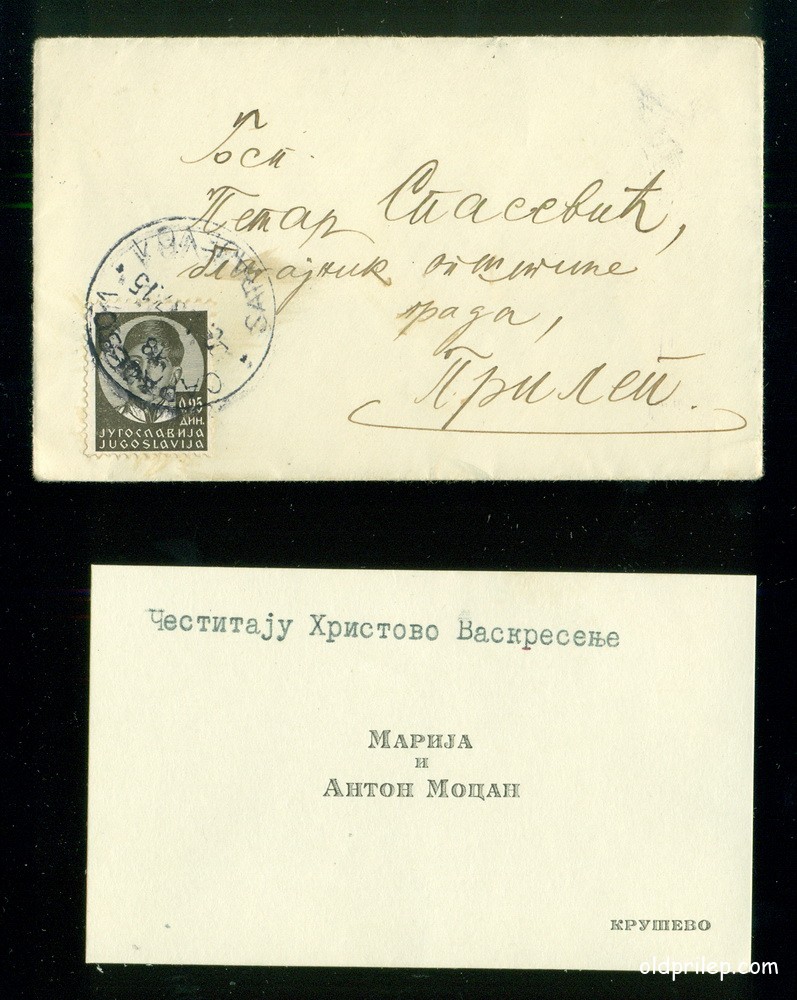 Госп.
Петар Спасевић,
благајник општине
града,
Прилеп.
0.25
ДИН.
ЈУГОСЛАВИЈА
JUGOSLAVIJA
Честитају Христово Васкресење
Марија
и
Антон Моцан
Крушево
oldprilep.com